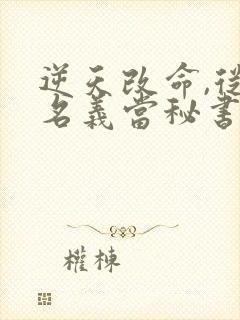 逆天改命,從
名義當秘書
權棟